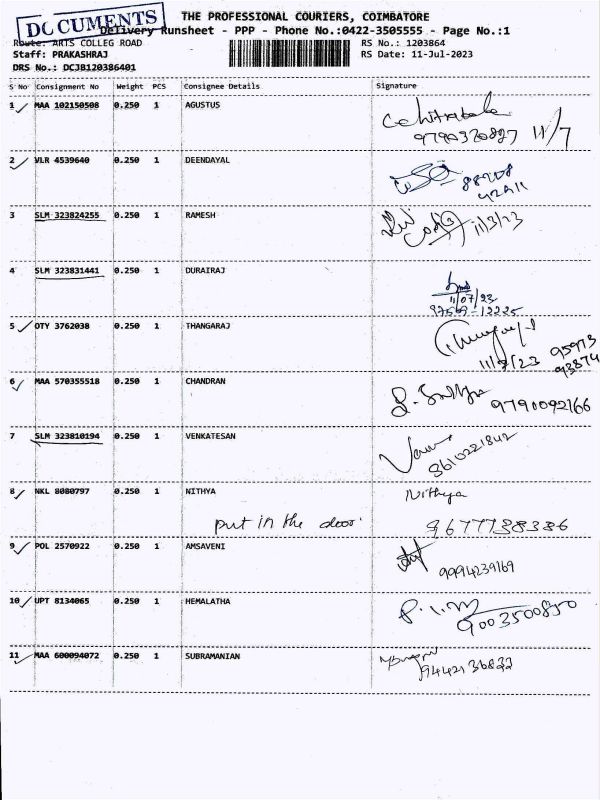 DOCUMENTS
THE PROFESSIONAL COURIERS, COIMBATORE
Delivery Runsheet - PPP - Phone No.:0422-3505555 - Page No.:1
Route: ARTS COLLEG ROAD
RS No.: 1203864
Staff: PRAKASHRAJ
RS Date: 11-Jul-2023
DRS No.: DCJB120386401
S No Consignment No Weight PCS Consignee Details Signature
1 MAA 102150508 0.250 1 AGUSTUS
9790320827 11/7
2 VLR 4539640 0.250 1 DEENDAYAL
3 SLM 323824255 0.250 1 RAMESH
11/3/23
4 SLM 323831441 0.250 1 DURAIRAJ
11/07/23
5 OTY 3762038 0.250 1 THANGARAJ
95973
93874
6 MAA 570355518 0.250 1 CHANDRAN
9790092166
7 SLM 323810194 0.250 1 VENKATESAN
8610221842
8 NKL 8080797 0.250 1 NITHYA Nithya
put in the door.
9677788386
9 POL 2570922 0.250 1 AMSAVENI
9994239169
10 UPT 8134065 0.250 1 HEMALATHA
9003500850
11 MAA 600094072 0.250 1 SUBRAMANIAN